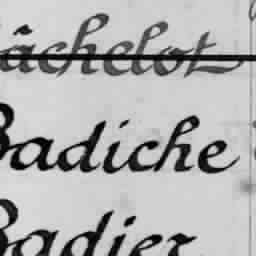 Bâchelot
Badiche
Badier